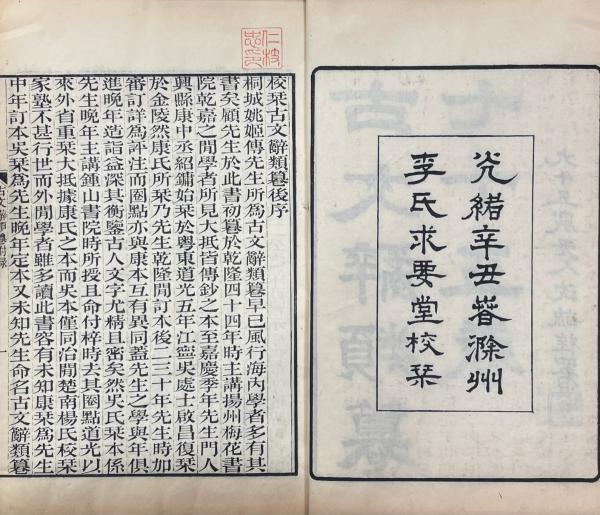 光緒辛丑春滁州
李氏求要堂校栞
校栞古文辭類篹後序
桐城姚姬傳先生所為古文辭類篹早已風行海內學者多有其
書矣顧先生於此書初篹於乾隆四十四年時主講揚州梅花書
院乾嘉之閒學者所見大抵皆傳鈔之本至嘉慶季年先生門人
興縣康中丞紹鏞始栞於粵東道光五年江寧吳處士啟昌復栞
於金陵然康氏所栞乃先生乾隆閒訂本後二三十年先生時加
審訂詳為評注而圈點亦與康本互有異同蓋先生之學與年俱
進晚年造詣益深其衡鑒古人文字尤精且密矣然吳氏栞本係
先生晚年主講鍾山書院時所授且命付梓時去其圈點道光以
來外省重栞大抵據康氏之本而吳本僅同治閒楚南楊氏校栞
家塾不甚行世而外閒學者雖多讀此書容有未知康栞為先生
中年訂本吳栞為先生晚年定本又未知先生命名古文辭類篹